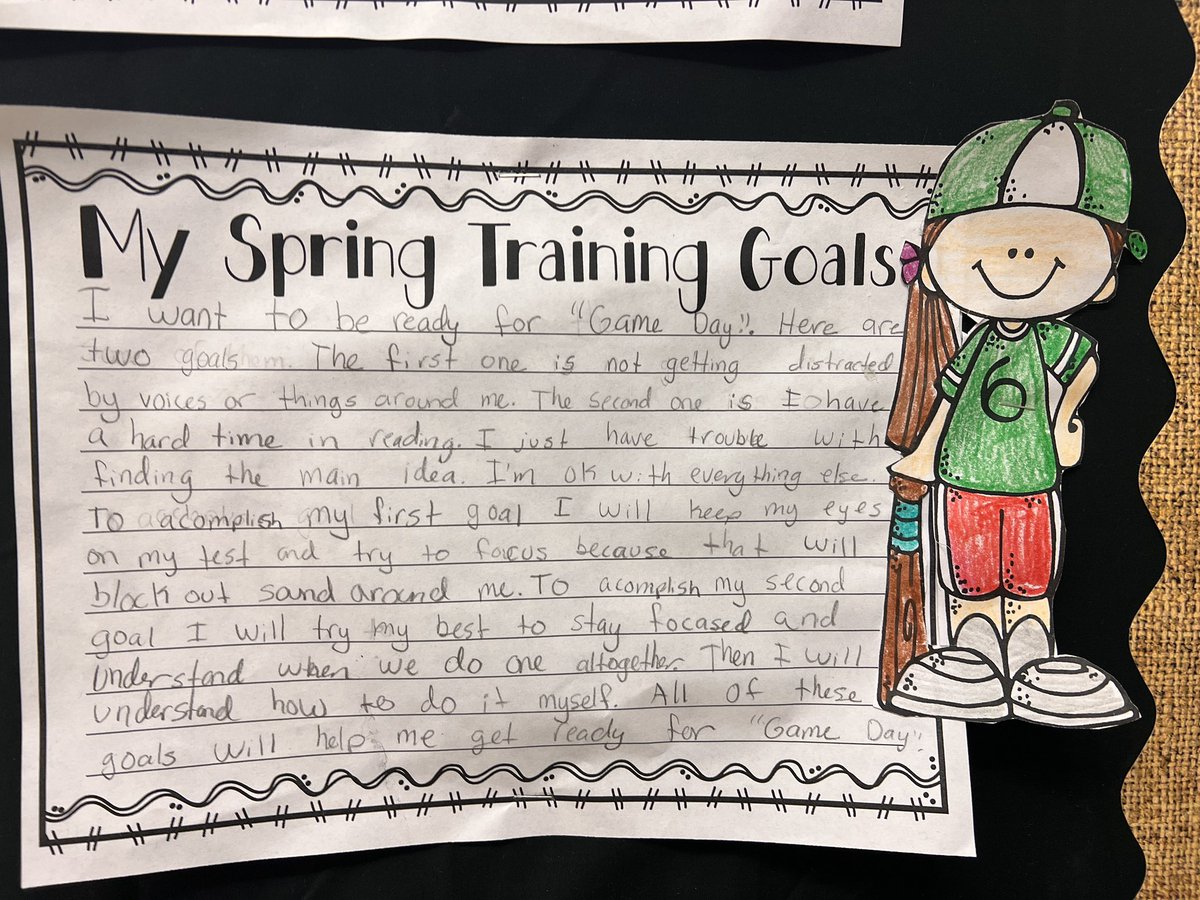 My Spring Training Goals
I want to be ready for "Game Day". Here are
two goals. The first one is not getting distracted
by voices or things around me. The second one is I have
a hard time in reading. I just have trouble with
finding the main idea. I'm ok with everything else.
To acomplish my first goal I will keep my eyes
on my test and try to focus because that will
block out sand around me. To acomplish my second
goal I will try my best to stay focased and
understand when we do one altogether. Then I will
understand how to do it myself. All of these
goals will help me get ready for "Game Day".
6